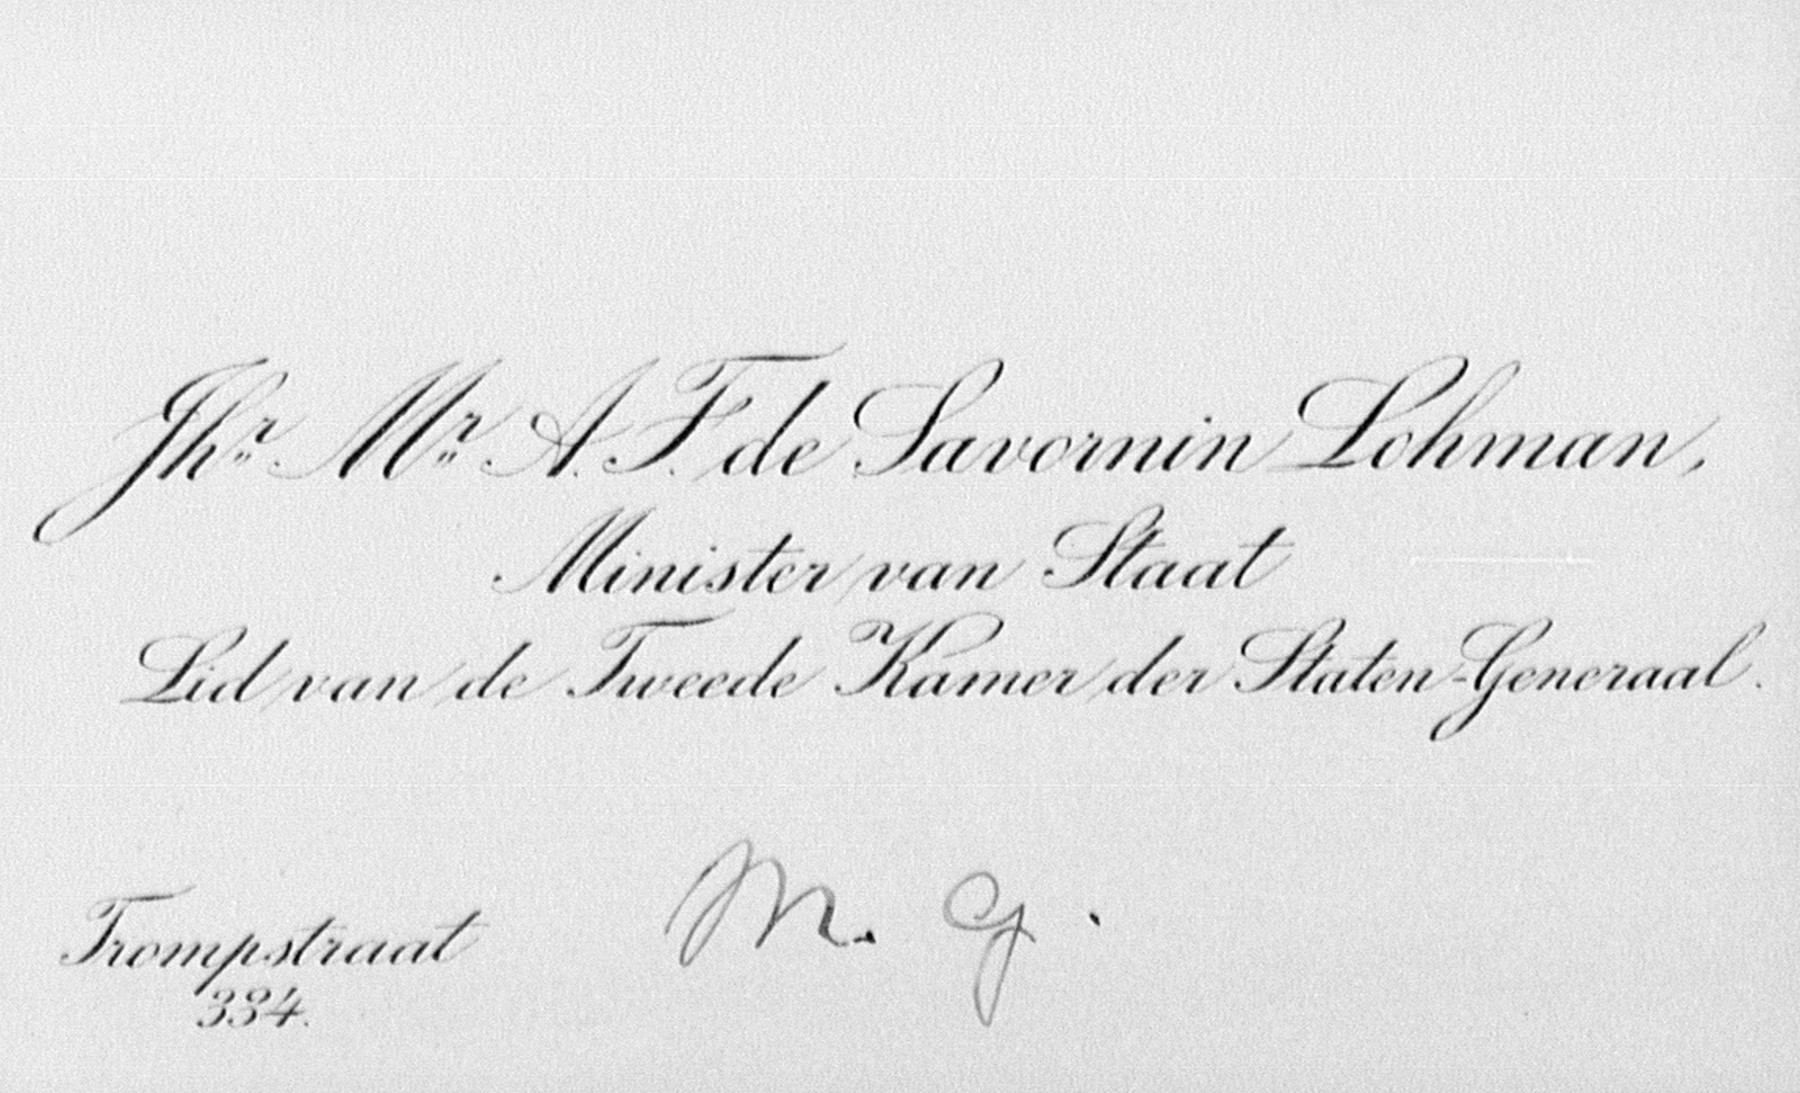 Jhr. Mr. A. F. de Savornin Lohman,
Minister van Staat
Lid van de Tweede Kamer der Staten-Generaal.
M. G.
Trompstraat
334.